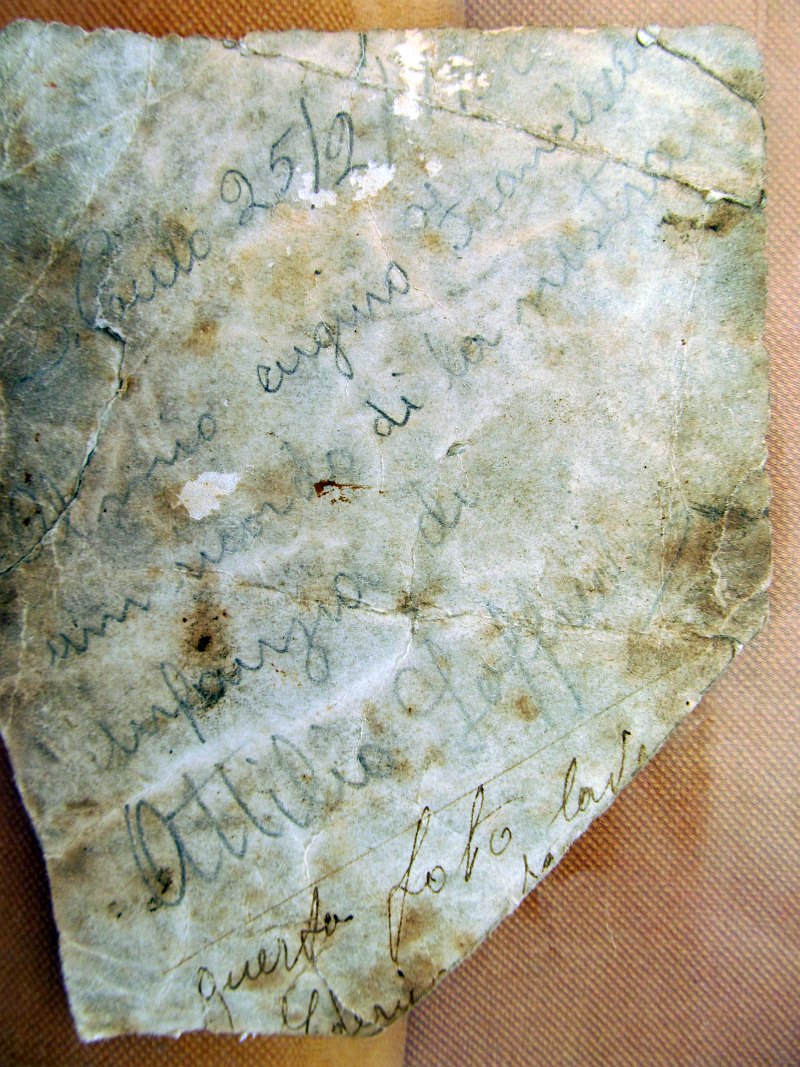 S. Paulo 25/2/
Al mio cugino Francesco
un ricordo di la nostra
infanzia di
Attilio
questa foto